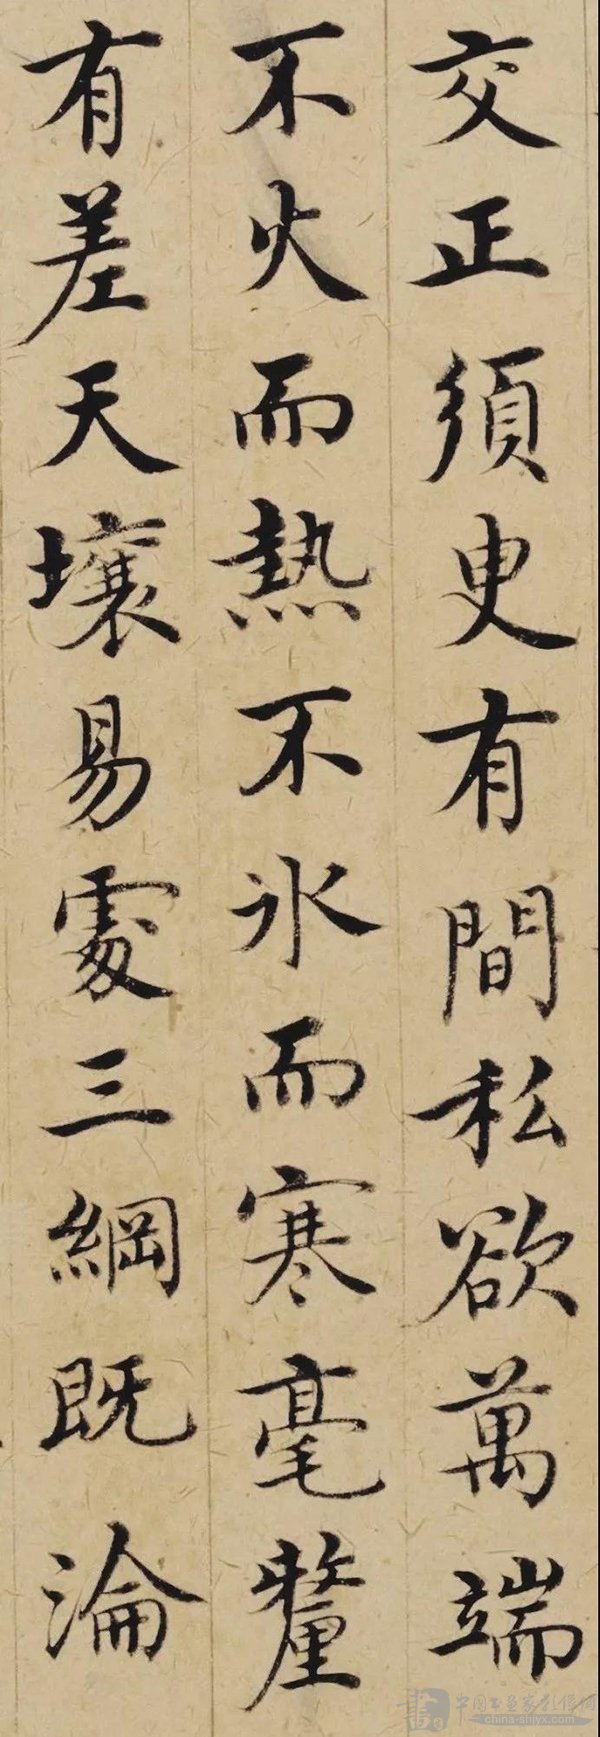 交正須臾有間私欲萬端
不火而熱不氷而寒毫釐
有差天壤易處三綱既淪
中国书画家影像网
china-shjyx.com